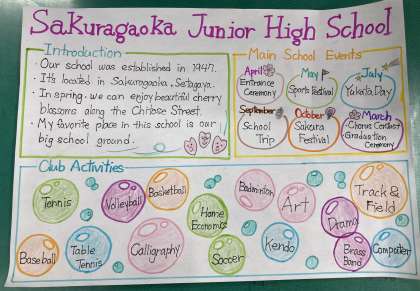 Sakuragaoka Junior High School
Introduction
· Our school was established in 1947.
· It's located in Sakuragaoka, Setagaya.
· In spring, we can enjoy beautiful cherry
blossoms along the Chitose Street.
· My favorite place in this school is our
big school ground.
Main School Events
April
Entrance
Ceremony
May
Sports Festival
July
Yukata Day
September
School
Trip
October
Sakura
Festival
March
Chorus Contest
Graduation
Ceremony
Club Activities
Tennis
Volleyball
Basketball
Home
Economics
Badminton
Art
Drama
Track &
Field
Baseball
Table
Tennis
Calligraphy
Soccer
Kendo
Brass
Band
Computer